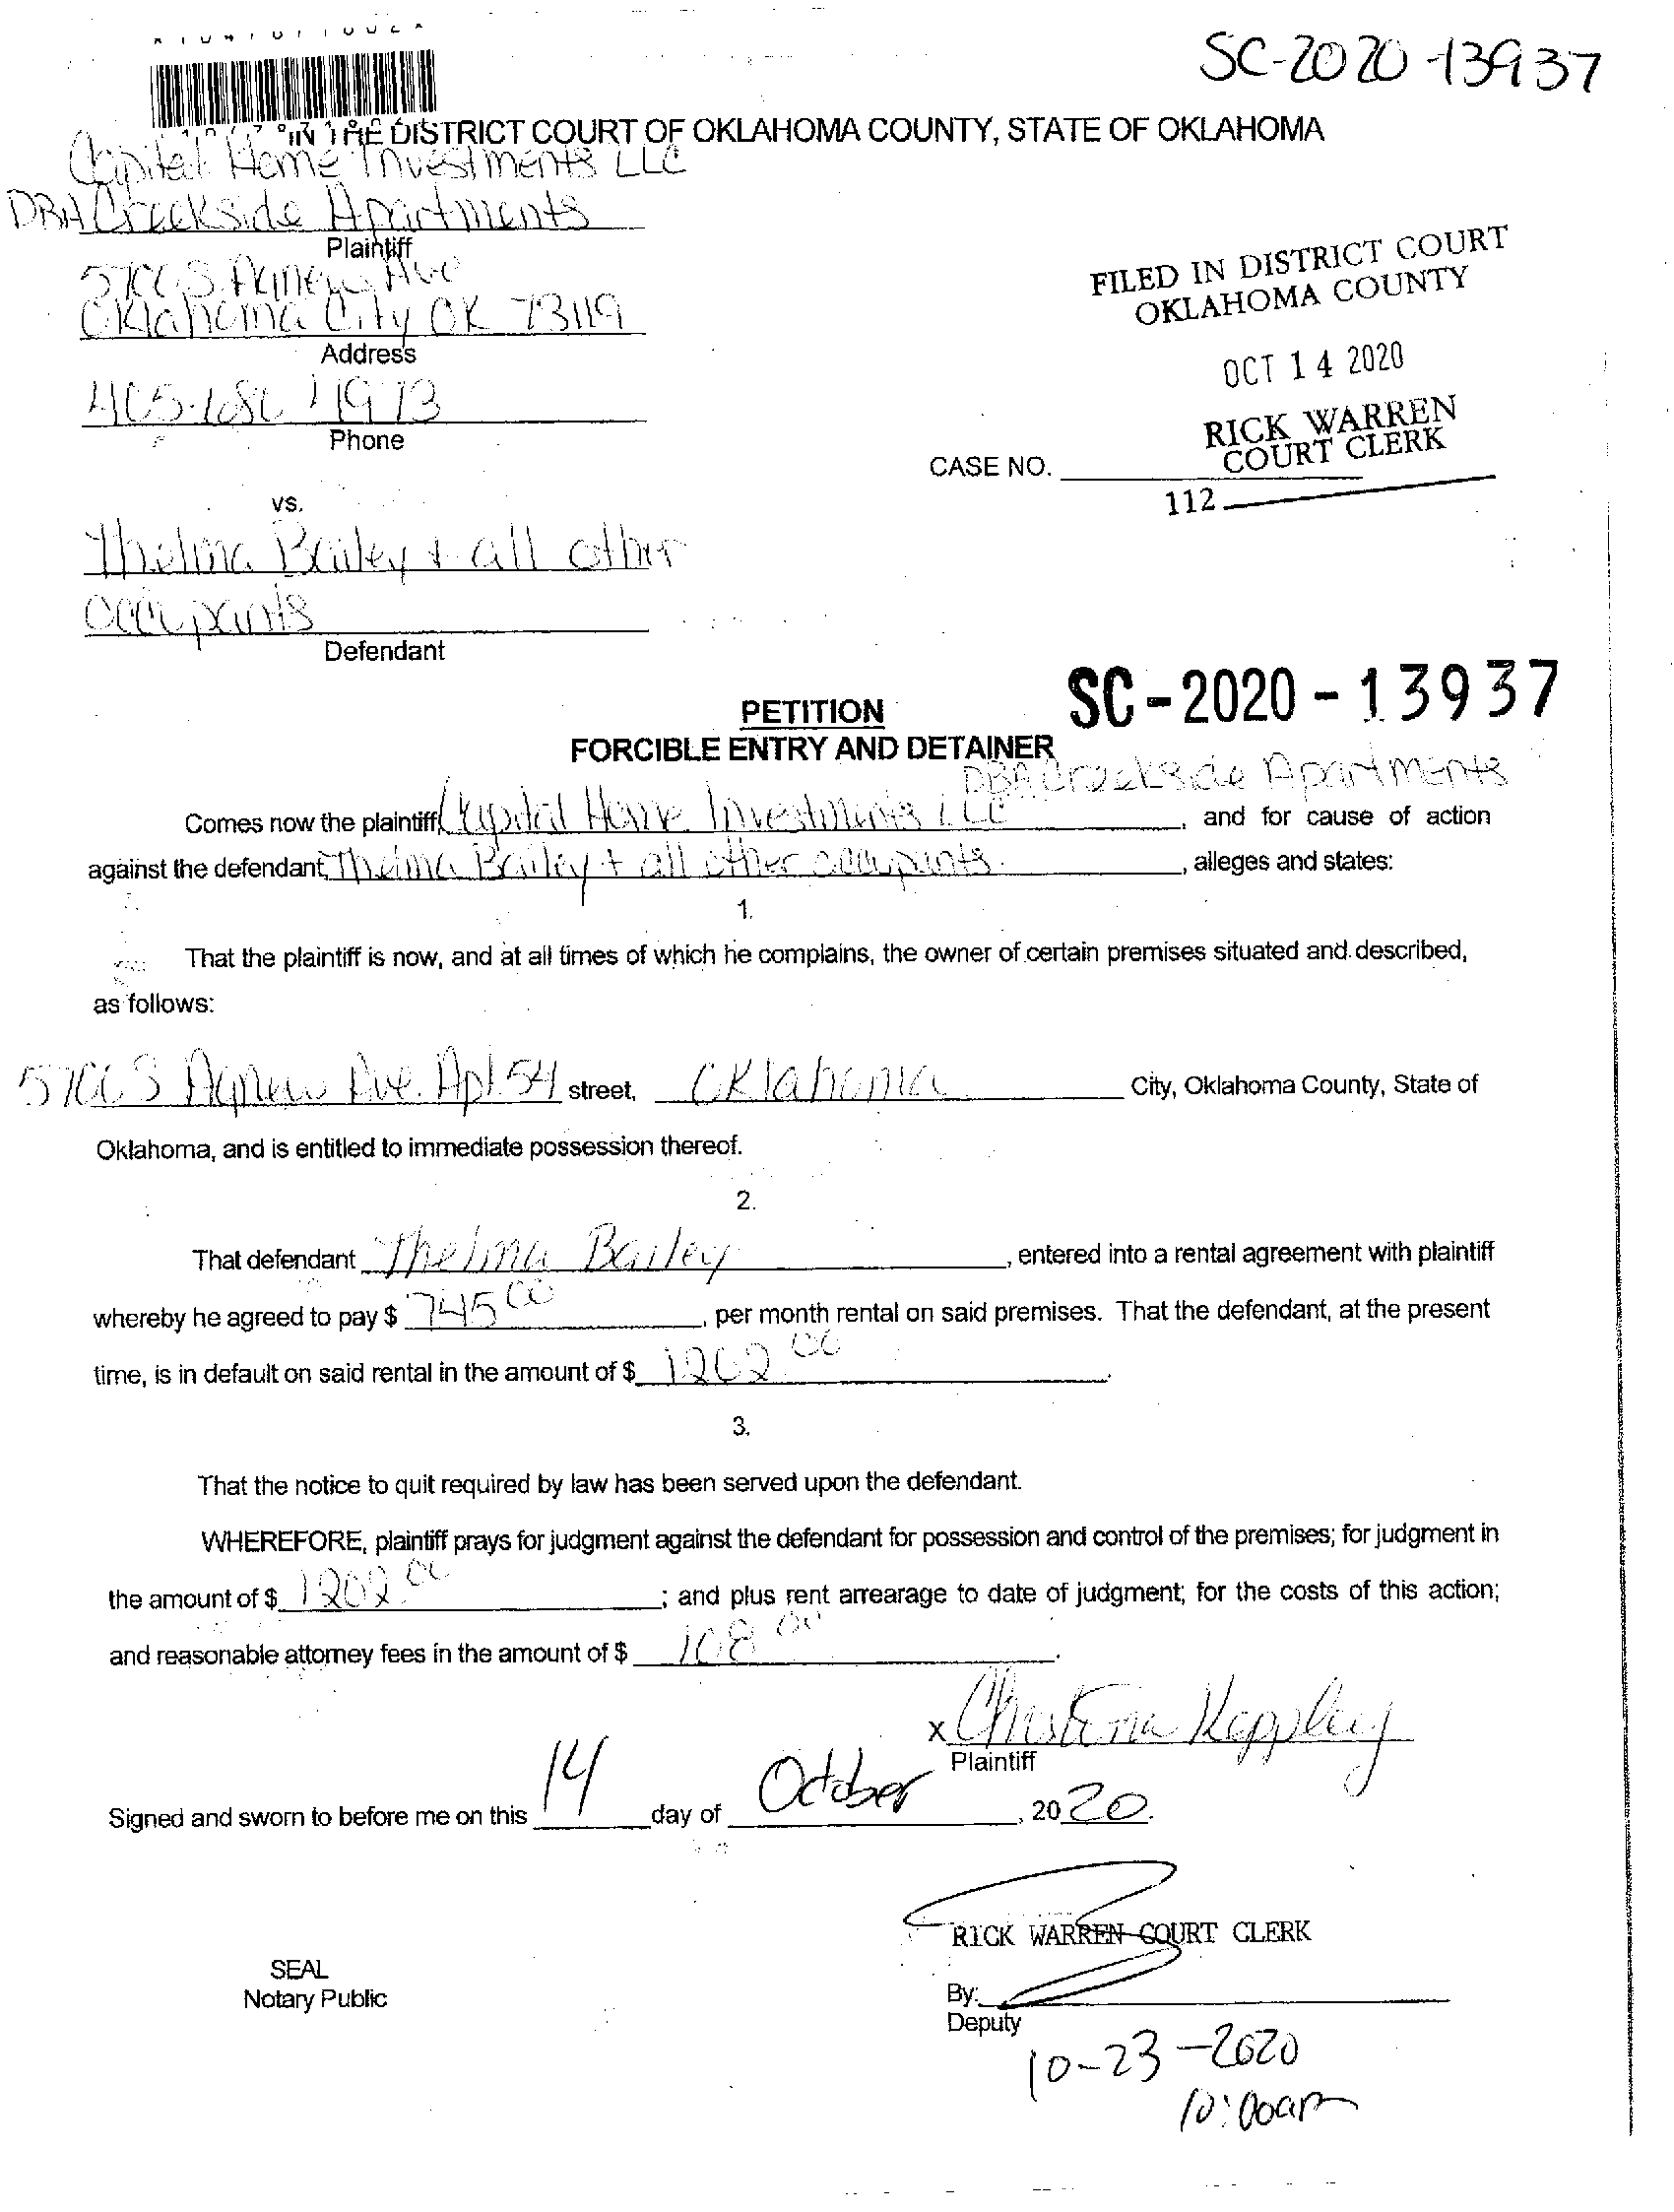 SC-2020-13937
IN THE DISTRICT COURT OF OKLAHOMA COUNTY, STATE OF OKLAHOMA
Capital Home Investments LLC
DBA Creekside Apartments
Plaintiff
5700 S. Agnew Ave
Oklahoma City OK 73119
Address
Phone
FILED IN DISTRICT COURT
OKLAHOMA COUNTY
OCT 14 2020
RICK WARREN
COURT CLERK
CASE NO.
112
vs.
Thelma Bailey + all other
occupants
Defendant
SC-2020-13937
PETITION
FORCIBLE ENTRY AND DETAINER
DBA Creekside Apartments
Comes now the plaintiff, Capital Home Investments LLC, and for cause of action
against the defendant, Thelma Bailey + all other occupants, alleges and states:
1.
That the plaintiff is now, and at all times of which he complains, the owner of certain premises situated and described,
as follows:
5700 S Agnew Ave. Apt. 54 street, Oklahoma City, Oklahoma County, State of
Oklahoma, and is entitled to immediate possession thereof.
2.
That defendant Thelma Bailey, entered into a rental agreement with plaintiff
whereby he agreed to pay $ 745 00, per month rental on said premises. That the defendant, at the present
time, is in default on said rental in the amount of $ 1202 00.
3.
That the notice to quit required by law has been served upon the defendant.
WHEREFORE, plaintiff prays for judgment against the defendant for possession and control of the premises; for judgment in
the amount of $ 1202 00; and plus rent arrearage to date of judgment; for the costs of this action;
and reasonable attorney fees in the amount of $ 108 00.
x Christina Keppley
Plaintiff
Signed and sworn to before me on this 14 day of October, 2020.
RICK WARREN COURT CLERK
SEAL
Notary Public
By:
Deputy
10-23-2020
10:00am